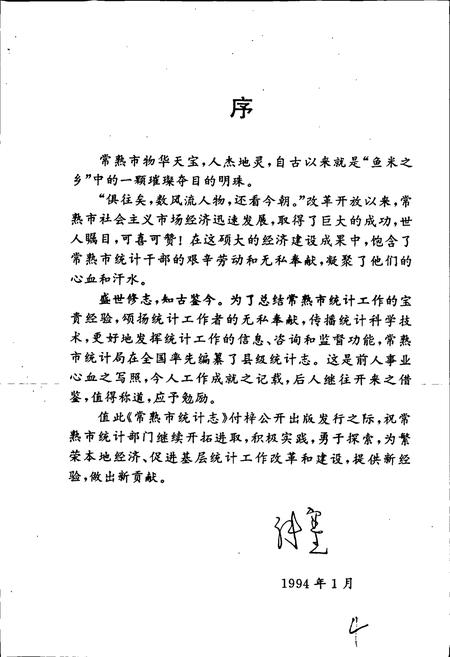 序
常熟市物华天宝，人杰地灵，自古以来就是“鱼米之
乡”中的一颗璀璨夺目的明珠。
“俱往矣，数风流人物，还看今朝。”改革开放以来，常
熟市社会主义市场经济迅速发展，取得了巨大的成功，世
人瞩目，可喜可赞！在这硕大的经济建设成果中，饱含了
常熟市统计干部的艰辛劳动和无私奉献，凝聚了他们的
心血和汗水。
盛世修志，知古鉴今。为了总结常熟市统计工作的宝
贵经验，颂扬统计工作者的无私奉献，传播统计科学技
术，更好地发挥统计工作的信息、咨询和监督功能，常熟
市统计局在全国率先编纂了县级统计志。这是前人事业
心血之写照，今人工作成就之记载，后人继往开来之借
鉴，值得称道，应予勉励。
值此《常熟市统计志》付梓公开出版发行之际，祝常
熟市统计部门继续开拓进取，积极实践，勇于探索，为繁
荣本地经济、促进基层统计工作改革和建设，提供新经
验，做出新贡献。
1994年1月